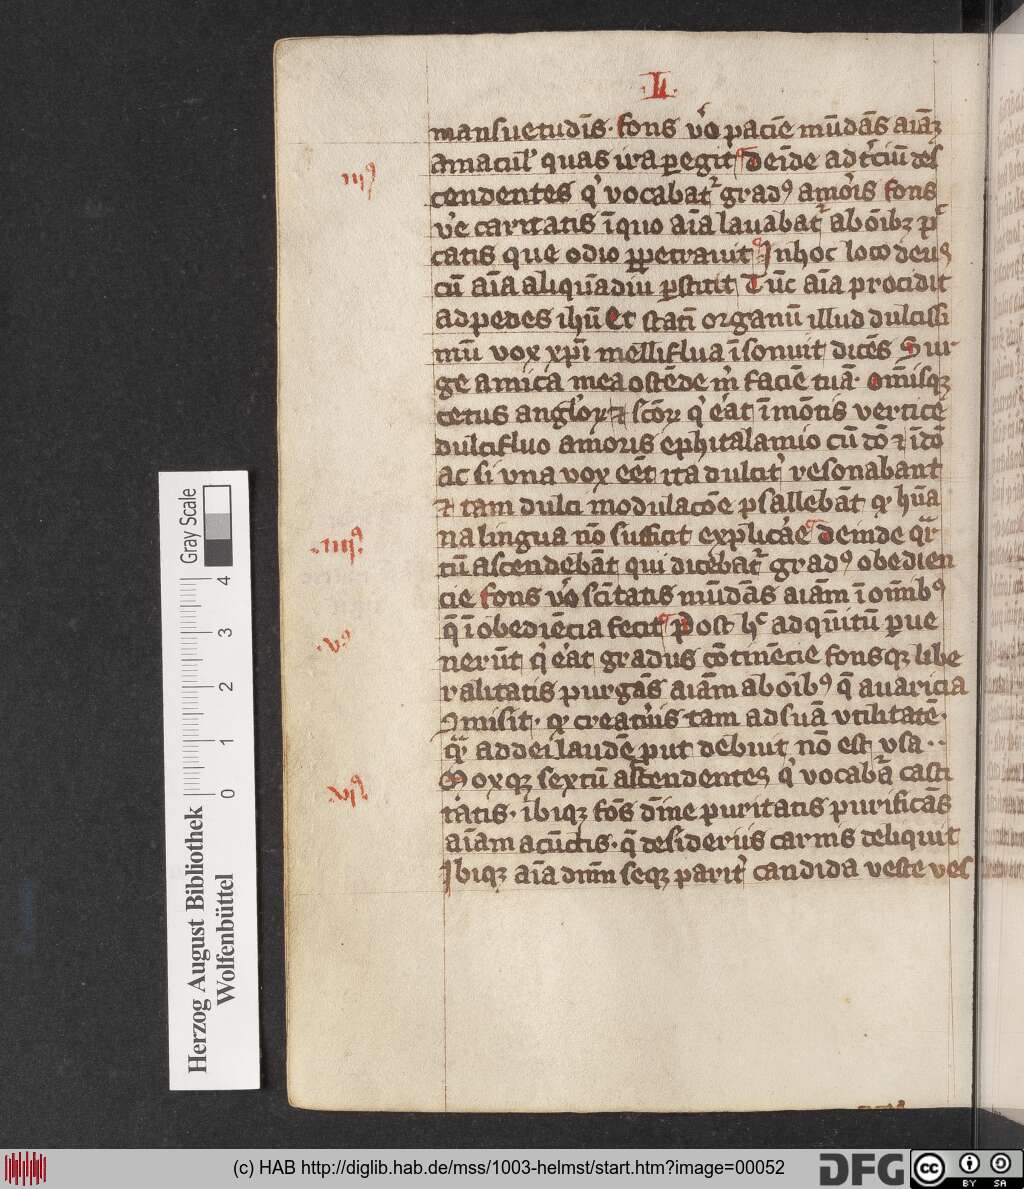 .L.
mansuetudīs. fons v̊o pacīe mūdās aīaʒ
amacul' quas ira ꝑegit deīde ad t̓ciū des
cendentes q' vocabat᷑ gradꝰ amor̄is fons
v̓e caritatis ī quo aīa lavabat᷑ ab oīb; pc
catis que odio ꝑpetrauit In hoc loco deus
cū aīa aliquādiu ꝑstitit Tūc aīa procidit
ad pedes ihū Et statī organū illud dulcissi
mū vox xp̄i melliflua īsonuit dicēs Sur
ge amica mea ostēde m̓ faciē tuā. om̄isqʒ
cetus angl'oꝝ ⁊ sc̄oꝝ q' e̓at ī mōtis vertice
dulcifluo amoris ephitalamio cū dō ⁊ ī dō
ac si vna vox eēt ita dulcit̓ resonabant
⁊ tam dulci modulac̄oe psallebāt qꝛ hūa
na lingua nō sufficit explica̓e deinde qr̄
tū ascendebāt qui dicebat᷑ gradꝰ obedien
cie fons v̊o sc̄itatis mūdās aīam ī om̄ibꝰ
q̄ ī obediēcia fecit Post hͨ ad quītū ꝑue
nerūt q' e̓at gradus cōtinēcie fonsqʒ libe
ralitatis purgās aīam ab oībꝰ q̄ auaricia
ꝯmisit. qꝛ creat̓is tam ad suā vtilitatē.
qᷓ ad dei laudē put debuit nō est vsa..
Moxqʒ sextū ascendentes q' vocaba̅ casti
tatis. ibiqʒ fōs dīne puritatis purificās
aīam a cūctis. q̄ desideriis carnis deliquit
Ibiqʒ aīa dn̄m seqʒ parit̓ candida veste ves
iiiꝰ
.iiiiꝰ.
.vꝰ.
Herzog August Bibliothek
Wolfenbüttel
Gray Scale
0 1 2 3 4
(c) HAB http://diglib.hab.de/mss/1003-helmst/start.htm?image=00052
DFG
cc
BY SA